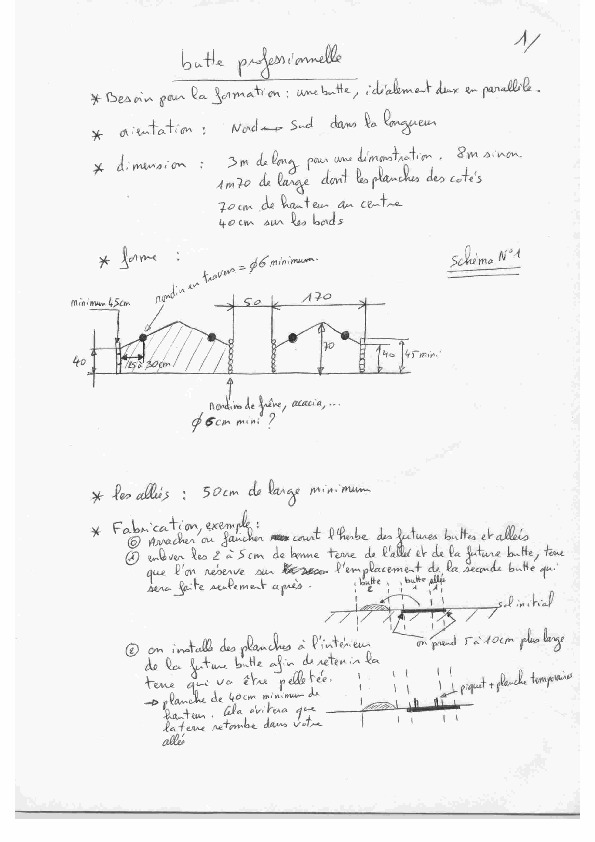 1/
butte professionnelle
* Besoin pour la formation : une butte, idéalement deux en parallèle.
* orientation : Nord → Sud dans la longueur
* dimension : 3m de long pour une démonstration. 8m sinon.
1m70 de large dont les planches des cotés
70cm de hauteur au centre
40cm sur les bords
* forme :
Schéma N°1
rondin en travers = ϕ6 minimum.
minimum 45cm
50
170
40
25 à 30cm
70
40
45 mini
Rondins de frêne, acacia, ...
ϕ 6cm mini ?
* les alliés : 50cm de large minimum
* Fabrication, exemple :
⓪ Arracher ou faucher court l'herbe des futures buttes et alleés
① enlever les 2 à 5cm de bonne terre de l'alleé et de la future butte, terre
que l'on réserve sur l'emplacement de la seconde butte qui
sera faite seulement après.
butte 2
butte 1
alleé 1
sol initial
on prend 5 à 10cm plus large
② on installe des planches à l'intérieur
de la future butte afin de retenir la
terre qui va être pelletée.
→ planche de 40cm minimum de
hauteur. Cela évitera que
la terre retombe dans votre
alleé
piquet + planche temporaires